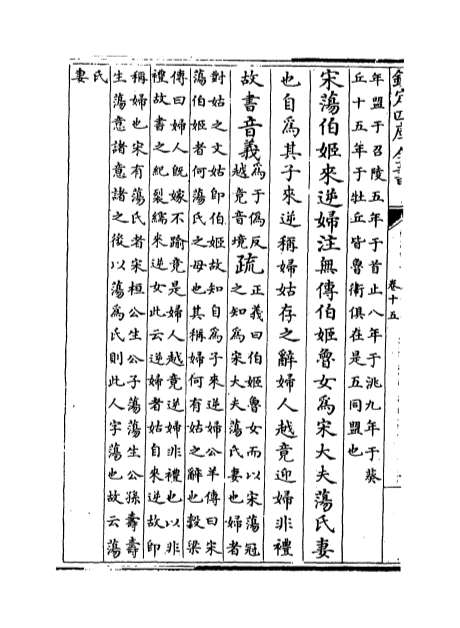 欽定四庫全書
卷十五
年盟于召陵五年于首止八年于洮九年于葵
丘十五年于牡丘皆魯衛俱在是五同盟也
宋蕩伯姬來逆婦注無傳伯姬魯女爲宋大夫蕩氏妻
也自爲其子來逆稱婦姑存之辭婦人越竟迎婦非禮
故書音義爲于偽反越竟音境疏正義曰伯姬魯女而以宋蕩冠之知爲宋大夫蕩氏妻也婦者
對姑之文姑即伯姬故知自爲子來逆婦公羊傳曰宋
蕩伯姬者何蕩氏之母也其稱婦何有姑之辭也穀梁
傳曰婦人既嫁不踰竟是婦人越竟逆婦非禮也以非
禮故書之紀裂繻來逆女此云逆婦者姑自來逆故即
稱婦也宋有蕩氏者宋桓公生公子蕩蕩生公孫壽壽
生蕩意諸意諸之後以蕩爲氏則此人字蕩也故云蕩
氏妻